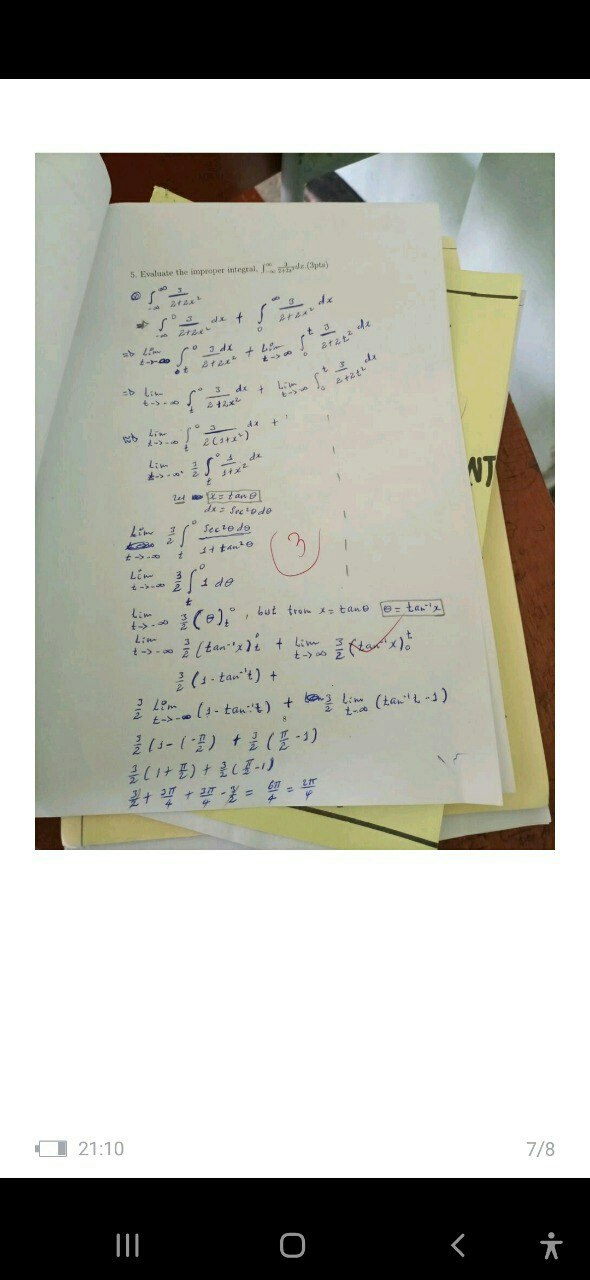 5. Evaluate the improper integral, ∫_{-∞}^{∞} 3/(2+2x²) dx.(3pts)
∫_{-∞}^{∞} 3/(2+2x²)
⇒ ∫_{-∞}^{0} 3/(2+2x²) dx + ∫_{0}^{∞} 3/(2+2x²) dx
⇒ Lim_{t→-∞} ∫_{t}^{0} 3dx/(2+2x²) + Lim_{t→∞} ∫_{0}^{t} 3/(2+2t²) dx
⇒ Lim_{t→-∞} ∫_{t}^{0} 3/(2+2x²) dx + Lim_{t→∞} ∫_{0}^{t} 3/(2+2t²) dx
⇒ Lim_{t→-∞} ∫_{t}^{0} 3/(2(1+x²)) dx +
Lim_{t→-∞} 3/2 ∫_{t}^{0} 1/(1+x²) dx
Let x = tanθ
dx = Sec²θdθ
Lim_{t→-∞} 3/2 ∫_{t}^{0} Sec²θdθ/(1+tan²θ)
3
Lim_{t→-∞} 3/2 ∫_{t}^{0} 1 dθ
Lim_{t→-∞} 3/2 (θ)_{t}^{0}, but from x = tanθ θ = tan⁻¹x
Lim_{t→-∞} 3/2 (tan⁻¹x)_{t}^{0} + Lim_{t→∞} 3/2 (tan⁻¹x)_{0}^{t}
3/2 (1 - tan⁻¹t) +
3/2 Lim_{t→-∞} (1 - tan⁻¹t) + 3/2 Lim_{t→∞} (tan⁻¹t - 1)
3/2 (1 - (-π/2) + 3/2 (π/2 - 1)
3/2 (1 + π/2) + 3/2 (π/2 - 1)
3/2 + 3π/4 + 3π/4 - 3/2 = 6π/4 = 2π/4
NT
21:10
7/8